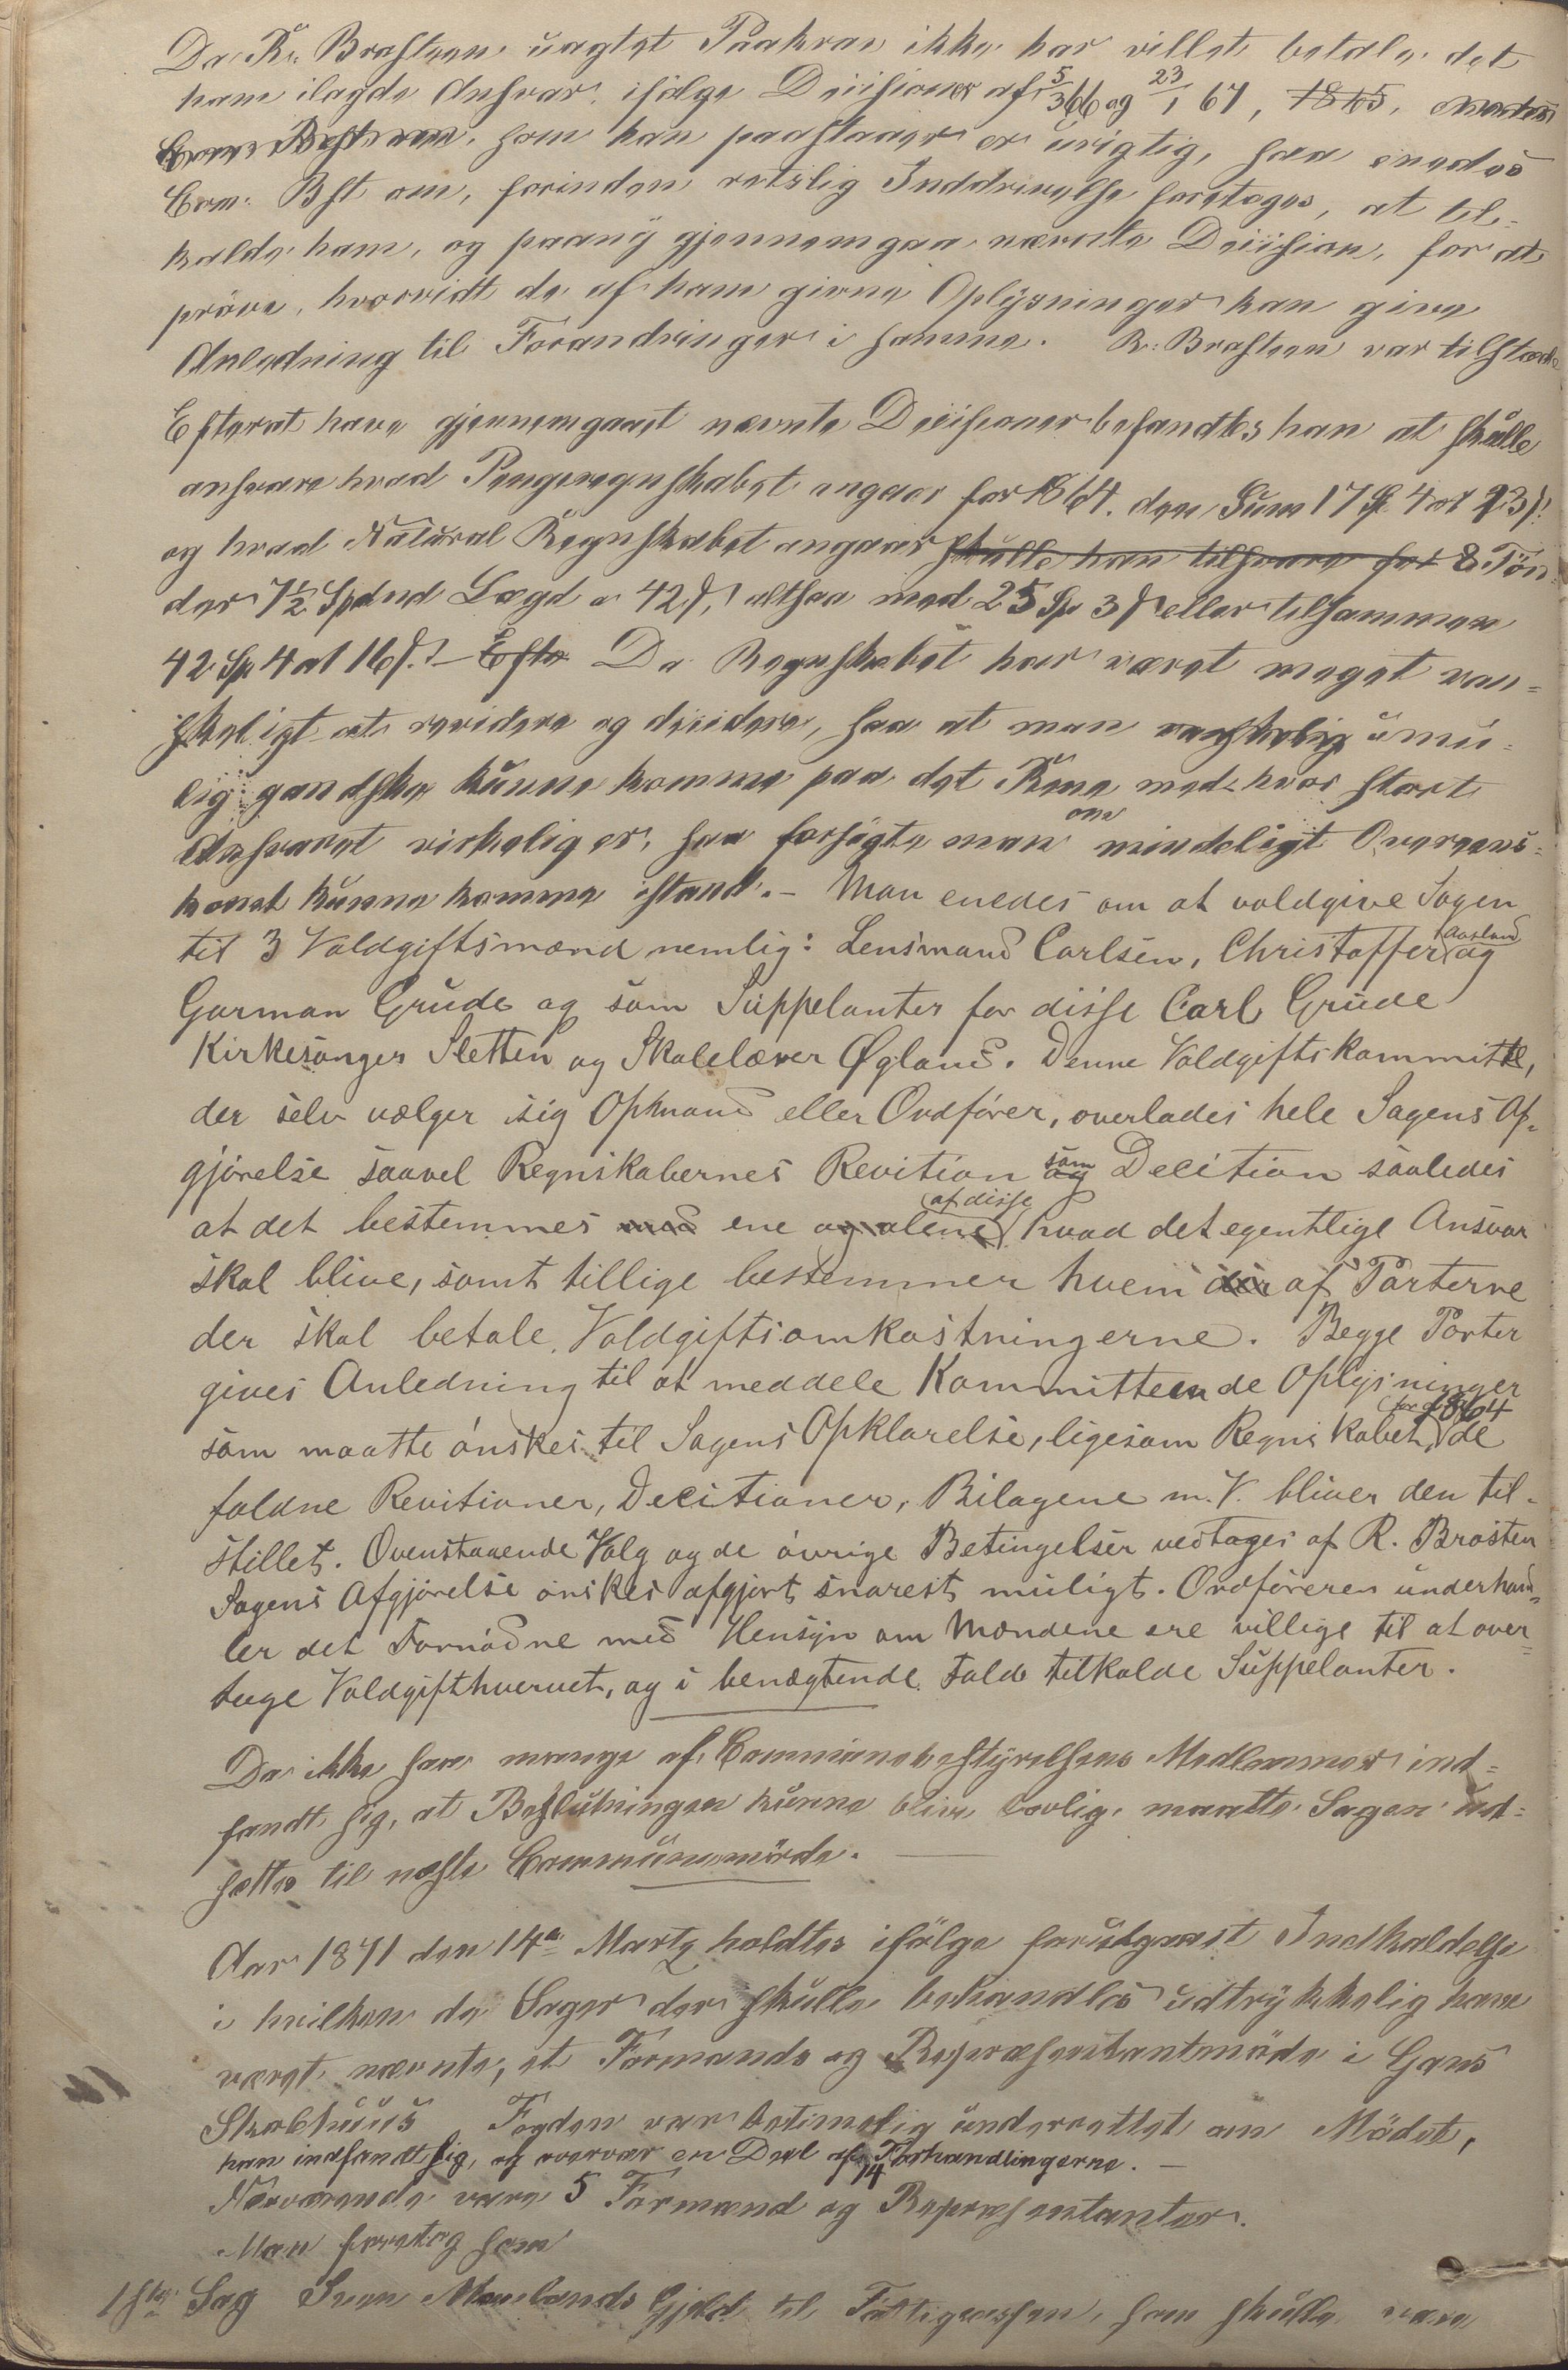 Da R. Brasteen uagtet Paakrav ikke har villet betale det
ham ilagde Ansvar ifølge Desisioner af 5/3 66 og 23/1 67, 1865,
som han paastaaer er urigtig, saa enedes
Com: Bst om, forinden retslig Inddrivelse foretages, at til=
kalde ham, og paany gjennemgaa nævnte Desision, for at
prøve, hvorvidt de af ham givne Oplysninger kan give
Anledning til Forandringer i samme. R. Brasteen var tilstæde
Efterat have gjennemgaaet nævnte Desisioner befandtes han at skulle
ansvare hvad Pengeregnskabet angaar for 1864. den Sum 17 Sp 4 ort 23 s.
og hvad Natural Regnskabet angaar skulle han tilsvare for 8 Tøn=
der 7½ Spand Bygd a 42 s, altsaa med 25 Sp 3 s eller tilsammen
42 Sp 4 ort 16 s. - Efte Da Regnskabet har været meget van=
skeligt at revidere og desidere, saa at man vanskelig umu=
lig gandske kunne komme paa det Rene med hvor stort
Ansvaret virkelig er, saa forsøgte man om mindeligt Overens=
komst kunne komme istand. - Man enedes om at voldgive Sagen
til 3 Voldgiftsmænd nemlig: Lensmand Carlsen, Christoffer Aarland og
Garman Grude og som Suppelanter for disse Carl Grude
Kirkesanger Sletten og Skolelærer Øgland. Denne Voldgiftskommitte,
der selv vælger sig Opmand eller Ordfører, overlades hele Sagens Af=
gjørelse saavel Regnskabernes Revition og som Decition saaledes
at det bestemmes med ene og alene af disse hvad det egentlige Ansvar
skal blive, samt tillige bestemmer hvem der af Parterne
der skal betale Voldgiftsomkostningerne. Begge Parter
gives Anledning til at meddele Kommitteen de Oplysninger
som maatte ønskes til Sagens Opklarelse, ligesom Regnskabet, for 1864 de
faldne Revitioner, Decitioner, Bilagene m. V. bliver den til=
stillet. Ovenstaaende Valg og de øvrige Betingelser vedtages af R. Brøsten
Sagens Afgjørelse ønskes afgjort snarest muligt. Ordføreren underhand=
ler det Fornødne med Hensyn om Mændene ere villige til at over=
tage Voldgifthvervet, og i benægtende Fald tilkalde Suppelanter.
Da ikke saa mange af Communebestyrelsens Medlemmer ind=
fandt sig, at Beslutningen kunne blive lovlig, maatte Sagen ud=
sættes til næste Communemøde.
Aar 1871 den 14de Marts holdtes ifølge forudgaaet Indkaldelse
i hvilken de Sager der skulle behandles udtrykkelig have
været nævnte, et Formands og Repræsentantmøde i Gans
Skolehuus Fogden var betimelig underrettet om Mødet,
han indfandt sig, og overvar en Deel af Forhandlingerne. -
Nærværende vare 5 Formænd og 14 Repræsentanter.
Man foretog som
1ste Sag Sven Maulands Gjeld til Fattigcassen, som skulle være